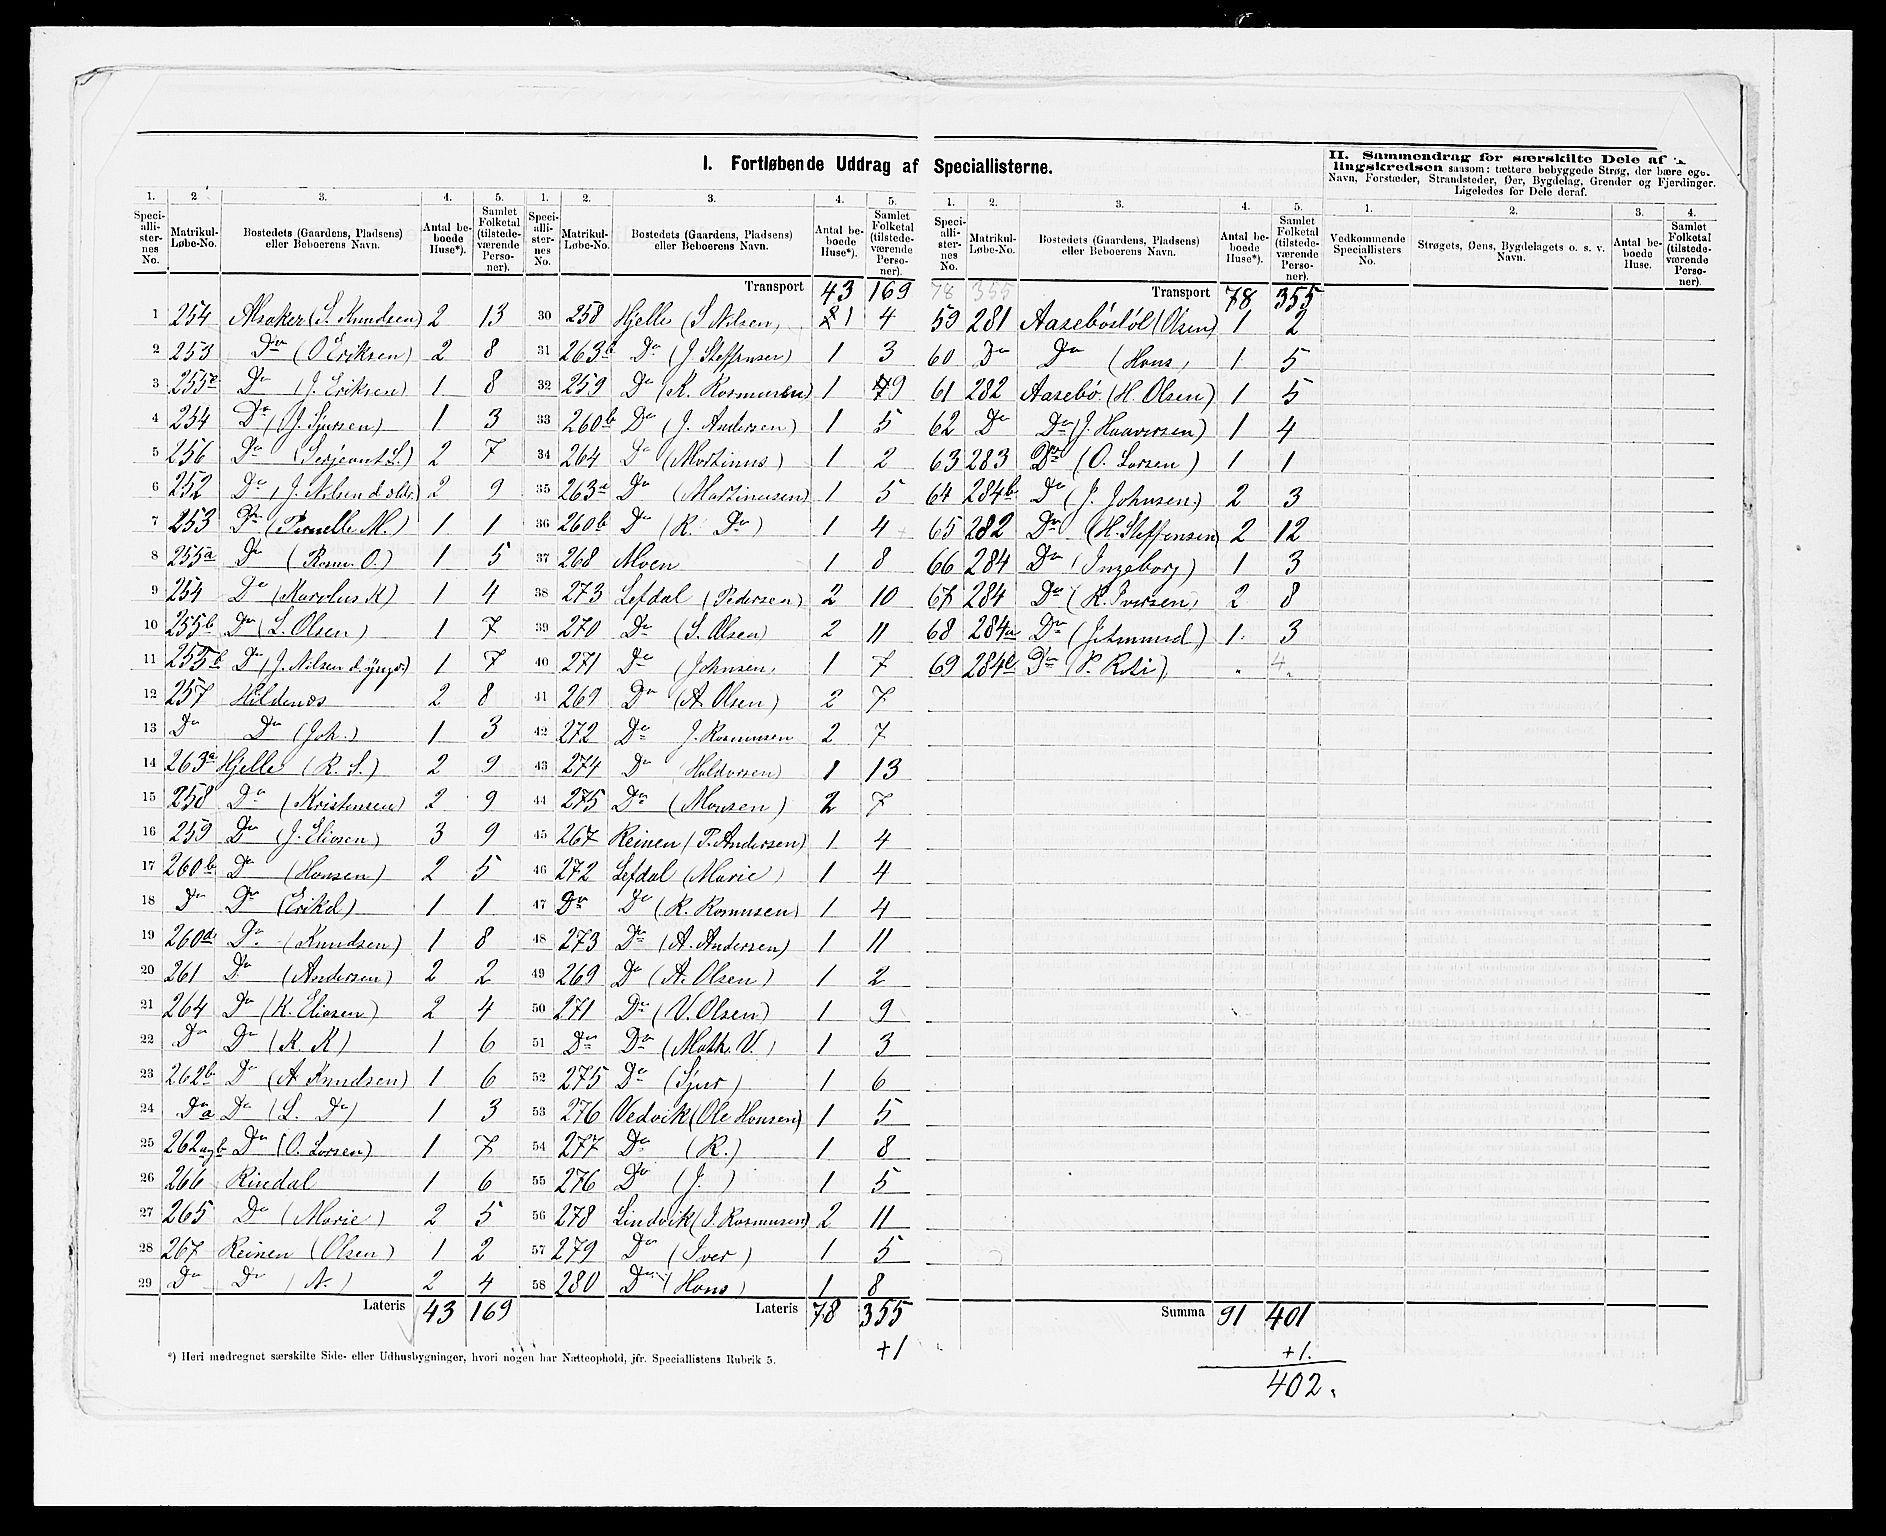 I. Fortløbende Uddrag af Speciallisterne.
II. Sammendrag for særskilte Dele af
lingskredsen sansom: tættere bebyggede Strøg, der bære eget
Navn, Forstæder, Strandsteder, Øer, Bygdelag, Grender og Fjerdinger.
Ligeledes for Dele deraf.
1. 2 3. 4. 5. 1. 2. 3. 4. 5. 1. 2. 3. 4. 5. 1. 2. 3. 4.
Speciallisternes No. Matrikul-Løbe-No. Bostedets (Gaardens, Pladsens) eller Beboerens Navn. Antal beboede Huse*). Samlet Folketal (tilstedeværende Personer).
Speciallisternes No. Matrikul-Løbe-No. Bostedets (Gaardens, Pladsens) eller Beboerens Navn. Antal beboede Huse*). Samlet Folketal (tilstedeværende Personer).
Speciallisternes No. Matrikul-Løbe-No. Bostedets (Gaardens, Pladsens) eller Beboerens Navn. Antal beboede Huse*). Samlet Folketal (tilstedeværende Personer).
Vedkommende Speciallisters No. Strøgets, Øens, Bygdelagets o. s. v. Navn. Antal beboede Huse. Samlet Folketal (tilstedeværende Personer).
1 254 Alsaker (S. Knudsen) 2 13
2 253 Do (O Eriksen) 2 8
3 255c Do (J. Eriksen) 1 8
4 254 Do (J. Sjursen) 1 3
5 256 Do (Serjeant S.) 2 7
6 252 Do (J. Nilsen d. eldr.) 2 9
7 253 Do (Pernelle M.) 1 1
8 255a Do (Rasm. O.) 1 5
9 254 Do (Karolus K) 1 4
10 255b Do (L. Olsen) 1 7
11 255b Do (J. Nilsen d. yngr.) 1 7
12 257 Hildenæs 2 8
13 Do Do (Joh.) 1 3
14 263a Hjelle (R. S.) 2 9
15 258 Do (Kristensen) 2 9
16 259 Do (J. Eliasen) 3 9
17 260b Do (Hansen) 2 5
18 Do Do (Erikd) 1 1
19 260d Do (Knudsen) 1 8
20 261 Do (Andersen) 2 2
21 264 Do (K. Eliasen) 2 4
22 Do Do (K. K) 1 6
23 262b Do (A Knudsen) 1 6
24 Do a Do (L. Do) 1 3
25 262a,b Do (O. Larsen) 1 7
26 266 Rindal 1 6
27 265 Do (Marie) 2 5
28 267 Reinen (Olsen) 1 2
29 Do Do (N.) 2 4
Lateris 43 169
Transport 43 169
30 258 Hjelle (S Nilsen) 1 4
31 263b Do (J Steffensen) 1 3
32 259 Do (K. Rasmussen) 1 9
33 260b Do (J. Andersen) 1 5
34 264 Do (Martinus) 1 2
35 263a Do (Martinusen) 1 5
36 260b Do (R. Do) 1 4
37 268 Moen 1 8
38 273 Lefdal (Pedersen) 2 10
39 270 Do (S. Olsen) 2 11
40 271 Do (Johnsen) 1 7
41 269 Do (A Olsen) 2 7
42 272 Do J. Rasmusen 2 7
43 274 Do Haldorsen) 1 13
44 275 Do (Monsen) 2 7
45 267 Reinen (P. Andersen) 1 4
46 272 Lefdal (Marie) 1 4
47 Do Do (R. Rasmusen) 1 4
48 273 Do (A. Andersen) 1 11
49 269 Do (A. Olsen) 1 2
50 271 Do (V. Olsen) 1 9
51 Do Do (Math. V.) 1 3
52 275 Do (Sjur) 1 6
53 276 Vedvik (Ole Hansen) 1 5
54 277 Do (R.) 1 8
55 276 Do (J.) 1 5
56 278 Lindvik (J. Rasmusen) 2 11
57 279 Do (Iver) 1 5
58 280 Do (Hans) 1 8
Lateris 78 355
+1
78 355 Transport 78 355
59 281 Aasebøstøl (Olsen) 1 2
60 Do Do (Hans) 1 5
61 282 Aasebø (H. Olsen) 1 5
62 Do Do (J. Haaversen) 1 4
63 283 Do (O. Larsen) 1 1
64 284b Do (J. Johnsen) 2 3
65 282 Do (H. Steffensen) 2 12
66 284 Do (Ingeborg) 1 3
67 284 Do (K. Iversen) 2 8
68 284a Do (J. Amund) 1 3
69 284c Do 4
Summa 91 401
+1.
402.
*) Heri medregnet særskilte Side- eller Udhusbygninger, hvori nogen har Natteophold, jfr. Speciallistens Rubrik 5.